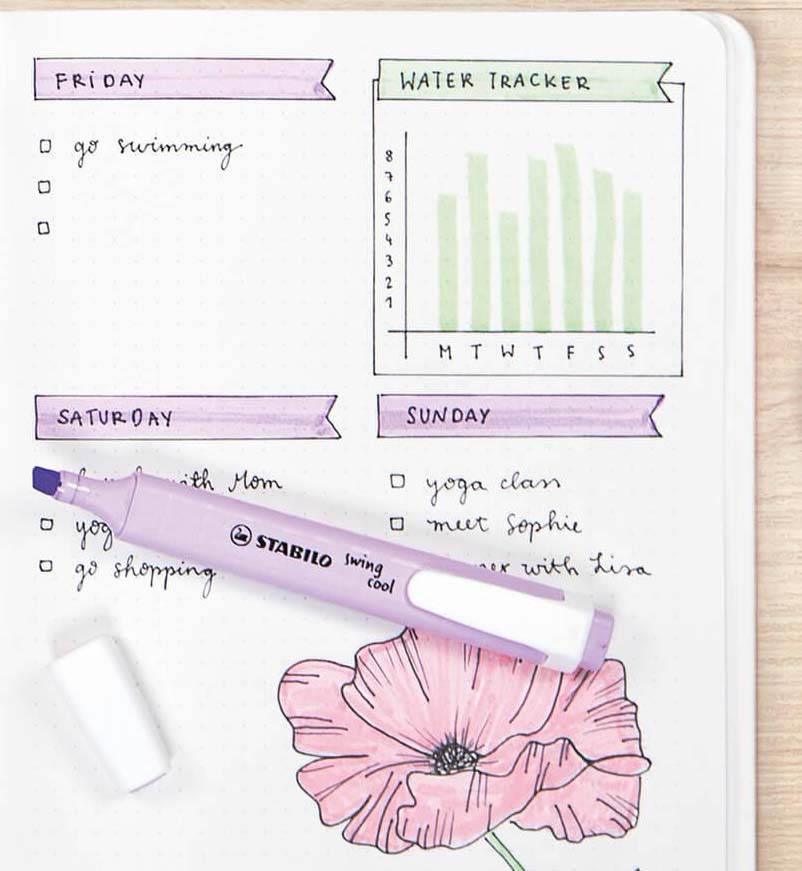 FRIDAY
go swimming
WATER TRACKER
8
7
6
5
4
3
2
1
M T W T F S S
SATURDAY
with Mom
go shopping
SUNDAY
yoga class
meet Sophie
with Lisa
STABILO swing
cool